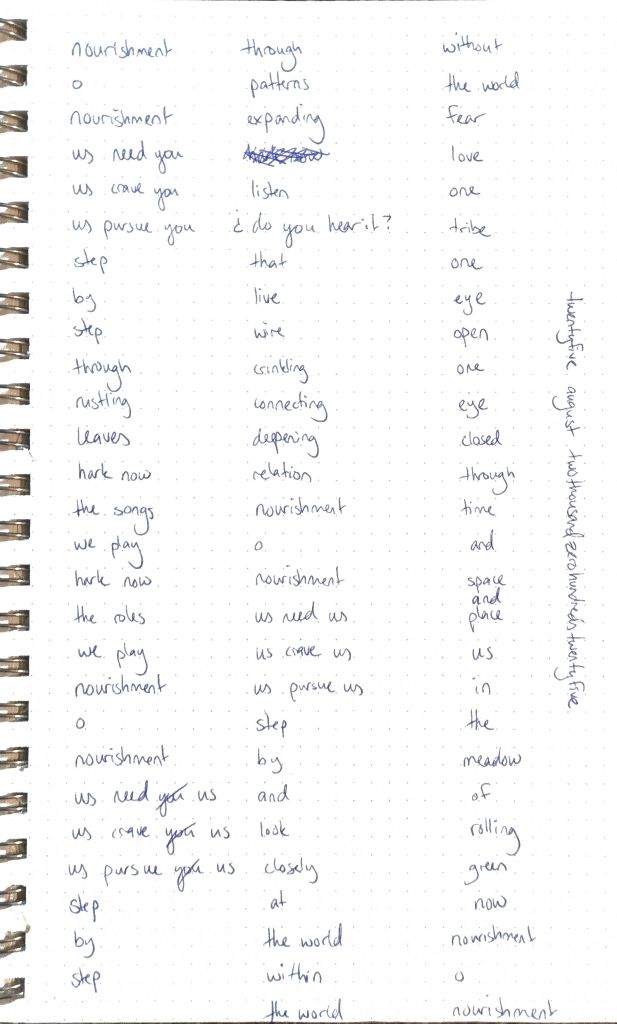 nourishment
o
nourishment
us need you
us crave you
us pursue you
step
by
step
through
rustling
leaves
hark now
the songs
we play
hark now
the roles
we play
nourishment
o
nourishment
us need you us
us crave you us
us pursue you us
step
by
step
through
patterns
expanding
listen
¿ do you hear it?
that
live
wire
crinkling
connecting
deepening
relation
nourishment
o
nourishment
us need us
us crave us
us pursue us
step
by
and
look
closely
at
the world
within
the world
without
the world
fear
love
one
tribe
one
eye
open
one
eye
closed
through
time
and
space
and
place
us
in
the
meadow
of
rolling
green
now
nourishment
o
nourishment
twentyfive august twothousandzerohundredstwentyfive